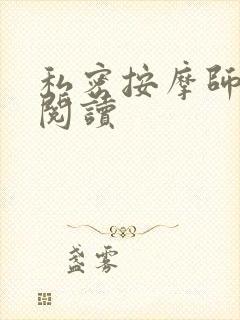 私密按摩師
閱讀
盞霧